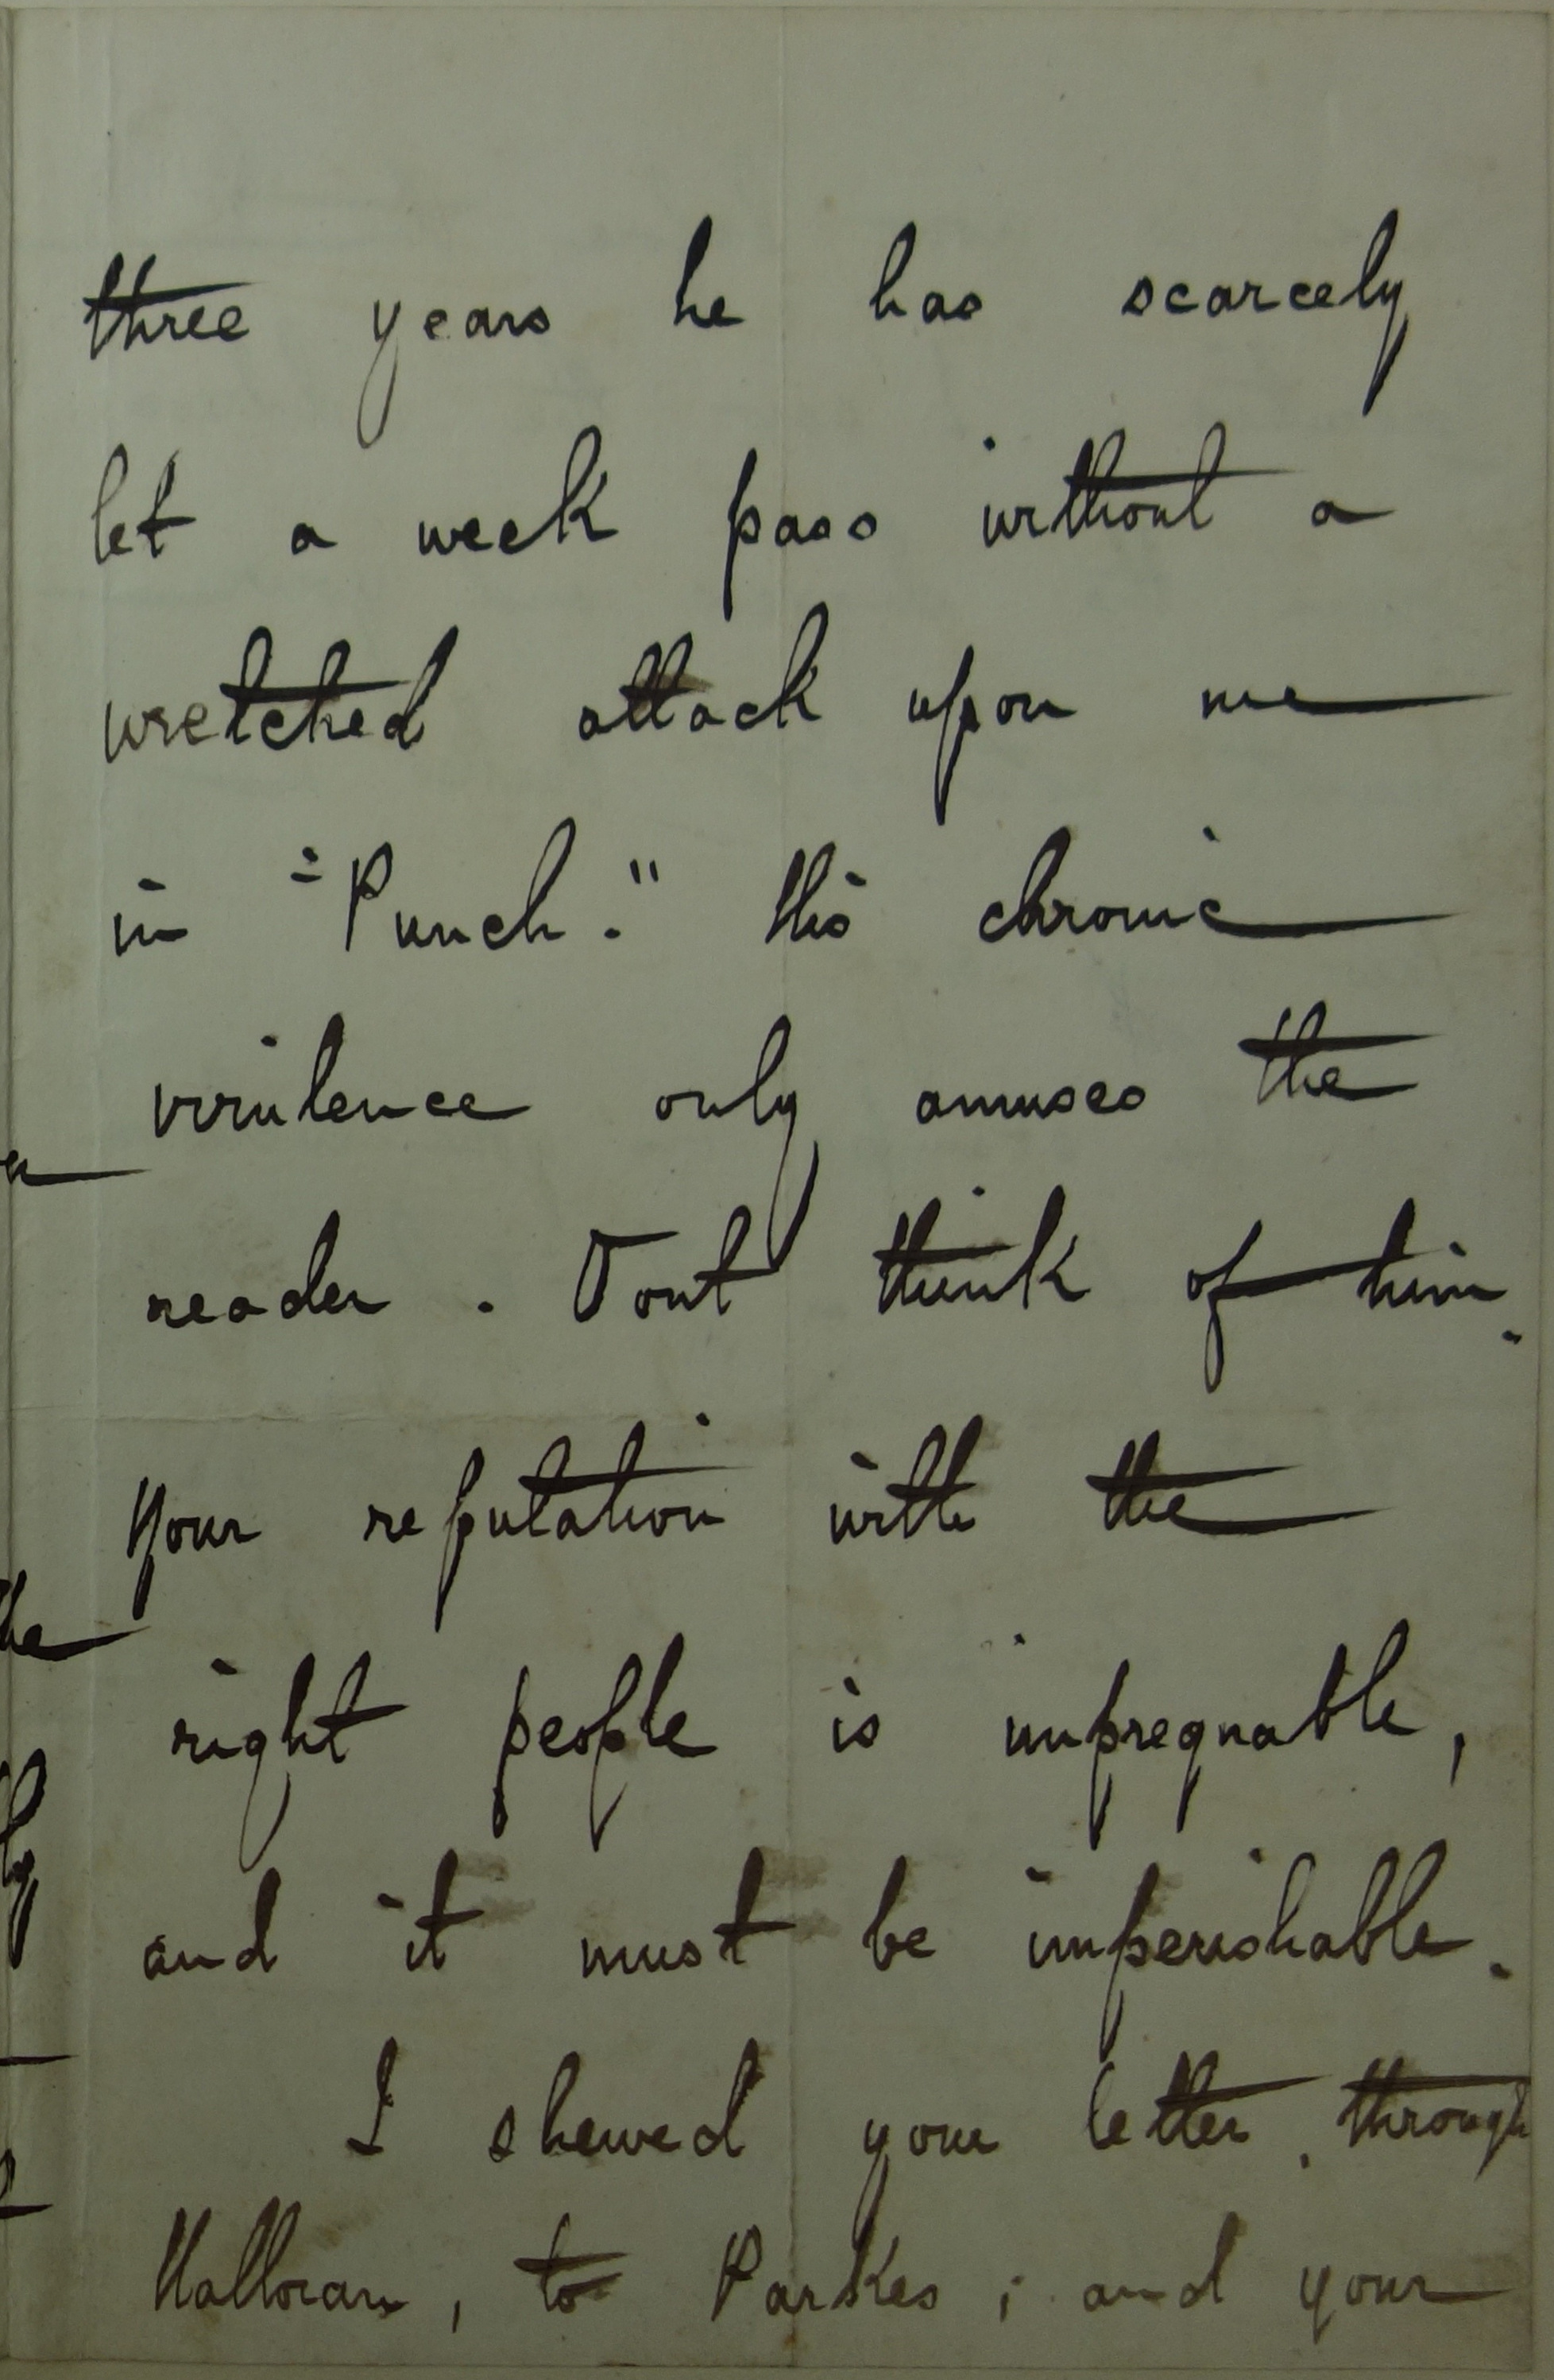 three years he has scarcely
let a week pass without a
wretched attack upon me
in "Punch." this chronic
virulence only amuses the
reader. Dont think of him.
Your reputation with the
right people is impregnable,
and it must be imperishable.
I shewed your letter, through
Halloran, to Parkes; and your